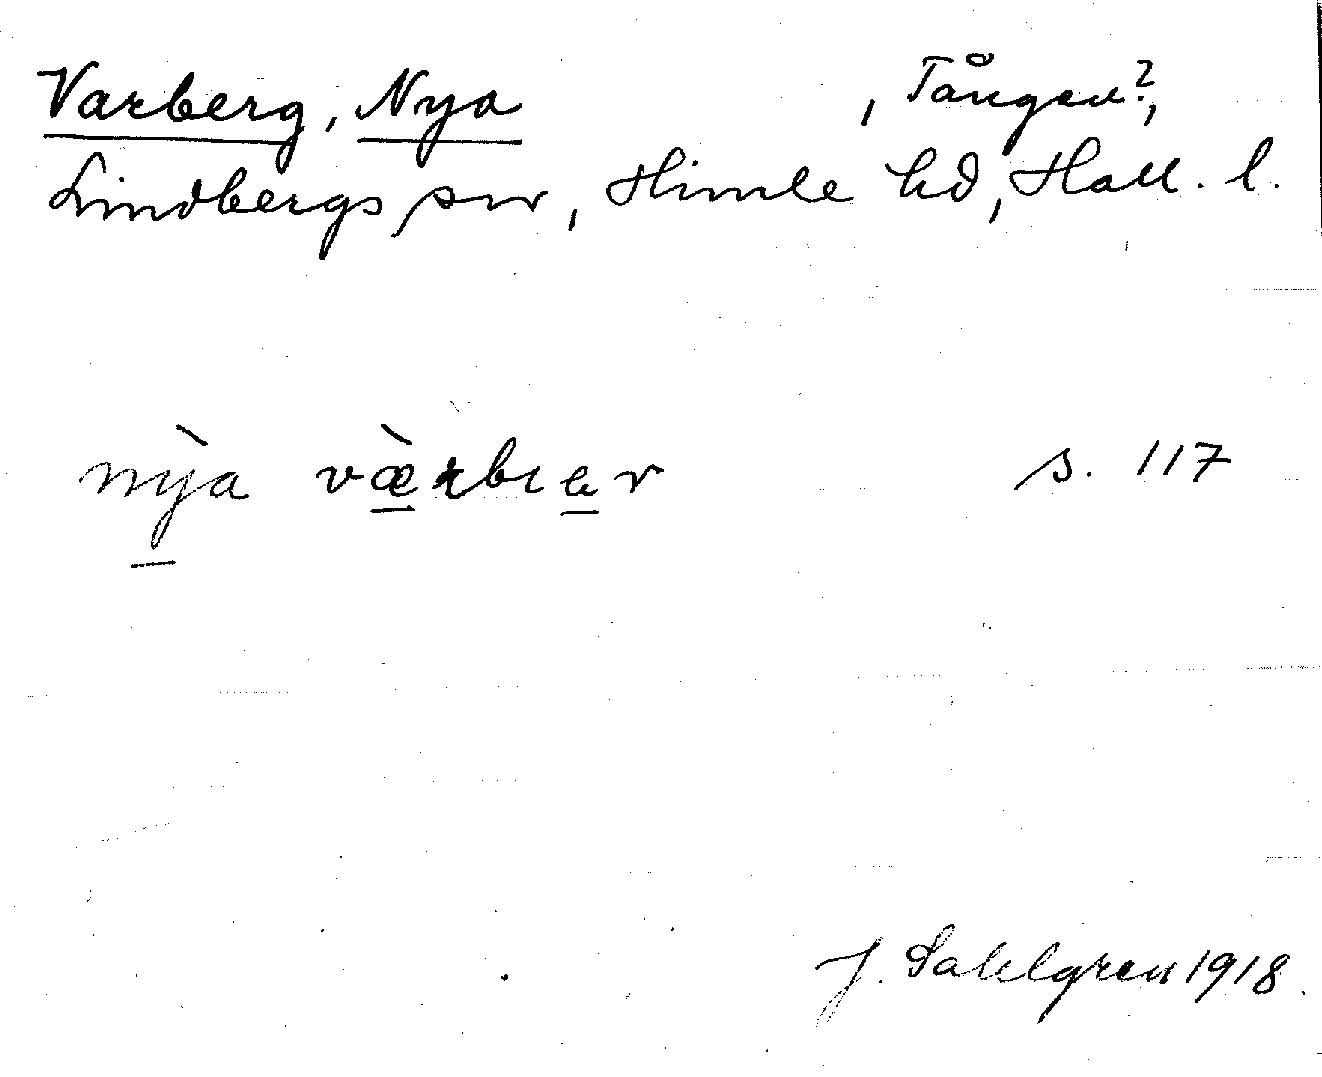 Varberg, Nya , Tången?,
Lindbergs sn, Himle hd, Hall. l.
nỳa væ̀rbɪar s. 117
J. Sahlgren 1918.